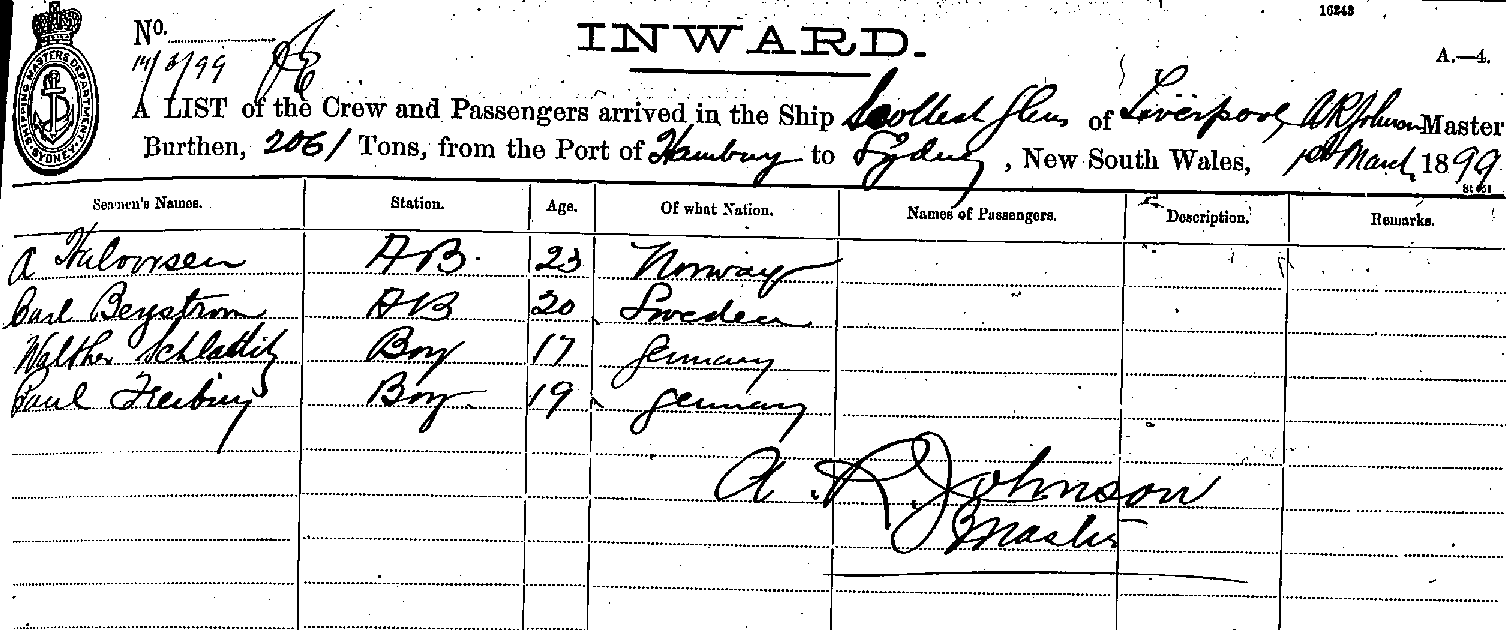 16243
No.
14/3/99
INWARD.
A.—4.
SHIPPING MASTERS DEPARTMENT SYDNEY
A LIST of the Crew and Passengers arrived in the Ship Scottish Glens of Liverpool, A R Johnson Master
Burthen, 2061 Tons, from the Port of Hamburg to Sydney, New South Wales, 1st March 1899
Seamen's Names. Station. Age. Of what Nation. Names of Passengers. Description. Remarks.
A Halvorsen AB. 23 Norway
Carl Bergstrom AB 20 Sweden
Walther Schlattitz Boy 17 Germany
Paul Boy 19 Germany
A. R. Johnson
Master